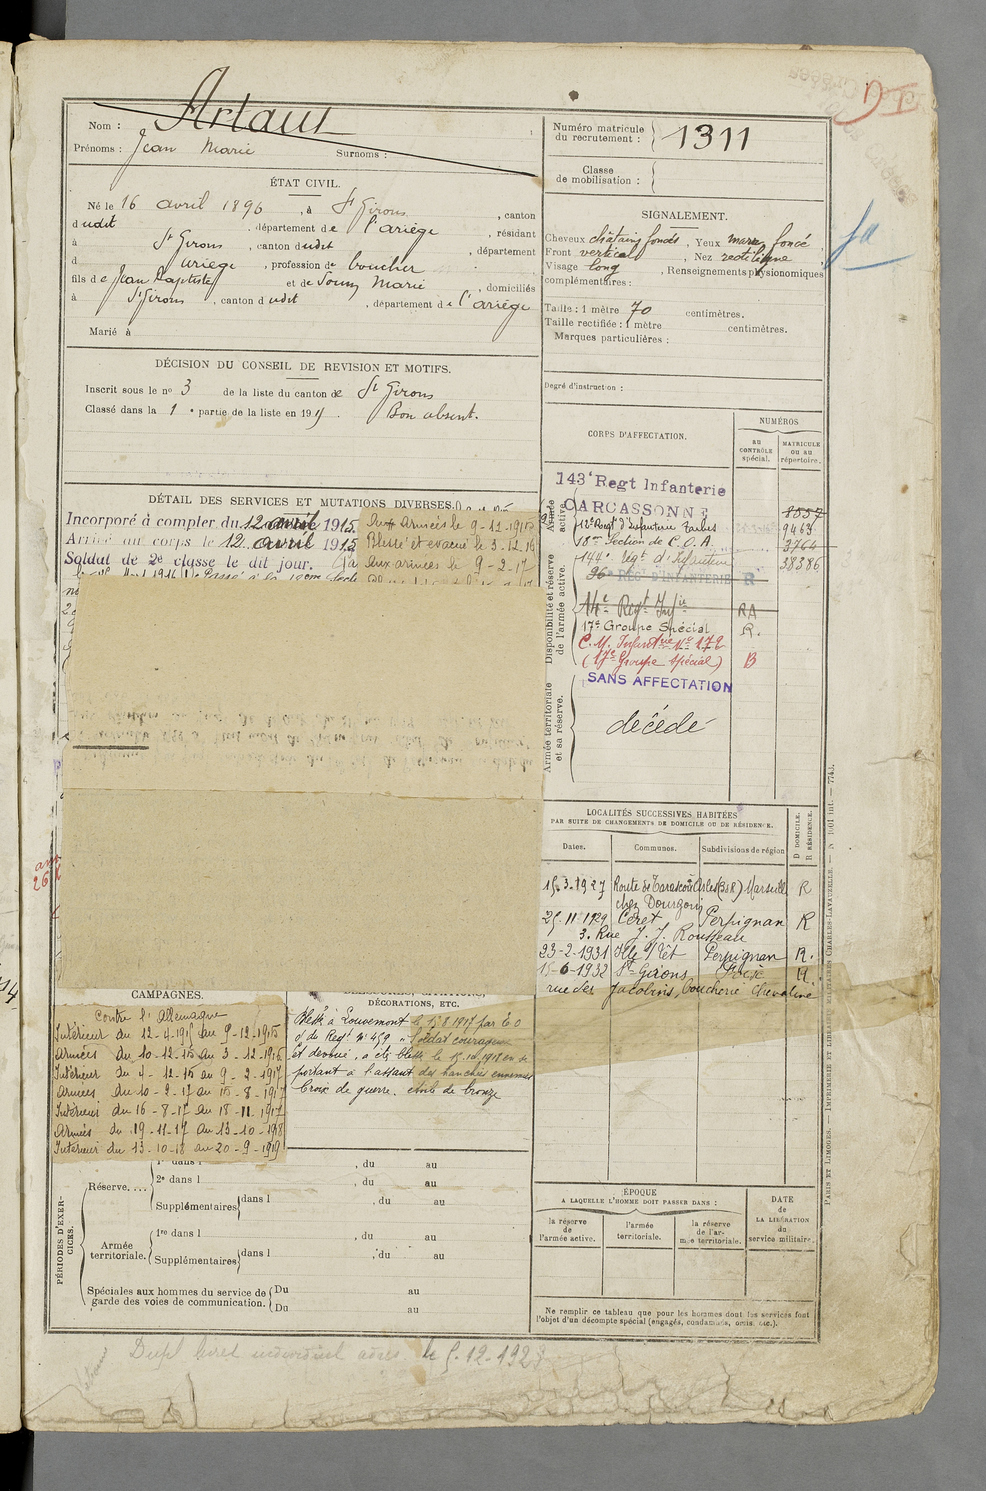 Nom : Artaut
Prénoms : Jean Marie Surnoms :
Numéro matricule du recrutement : 1311
Classe de mobilisation :
ÉTAT CIVIL.
Né le 16 avril 1896, à St Girons, canton
dudit, département de l'Ariège, résidant
à St Girons, canton dudit, département
d Ariège, profession de boucher
fils de Jean Baptiste et de Soum Marie, domiciliés
à St Girons, canton dudit, département de l'Ariège
Marié à
SIGNALEMENT.
Cheveux châtains foncés, Yeux marr. foncé
Front vertical, Nez rectiligne
Visage long, Renseignements physionomiques
complémentaires :
Taille : 1 mètre 70 centimètres.
Taille rectifiée : 1 mètre centimètres.
Marques particulières :
Degré d'instruction :
DÉCISION DU CONSEIL DE REVISION ET MOTIFS.
Inscrit sous le no 3 de la liste du canton de St Girons
Classé dans la 1e partie de la liste en 191 Bon absent.
CORPS D'AFFECTATION.
NUMÉROS
AU CONTRÔLE spécial.
MATRICULE OU AU répertoire.
Armée active.
143e Regt Infanterie
CARCASSONNE 8557
12e Regt d'Infanterie Tarbes 9443
18me Section de C.O.A. 3764
144e Régt d'Infanterie 38386
Disponibilité et réserve de l'armée active.
96e REGt D'INFANTERIE R
14e Regt Infie RA
17e Groupe Spécial R.
C. M. Infanterie No 179
(17e Groupe Spécial) B
SANS AFFECTATION
Armée territoriale et sa réserve.
décédé
DÉTAIL DES SERVICES ET MUTATIONS DIVERSES.
Incorporé à compter du 12 avril 1915
Arrivé au corps le 12 avril 1915
Soldat de 2e classe le dit jour.
Aux Armées le 9-12-1915
Blessé et évacué le 3-12-16
Aux armées le 9-2-17
LOCALITÉS SUCCESSIVES HABITÉES
PAR SUITE DE CHANGEMENTS DE DOMICILE OU DE RÉSIDENCE.
Dates. Communes. Subdivisions de région D DOMICILE. R RÉSIDENCE.
15.3.1927 Route de Tarascon Arles (BdR) Marseille R
chez Dourgoin
25.11.1929 Céret, Perpignan R
3. Rue J. J. Rousseau
23-2-1931 Ille s/ Têt Perpignan R.
15-6-1932 St Girons Foix R
rue des Jacobins, boucherie Chevaline
CAMPAGNES.
Contre l'Allemagne
Intérieur du 12-4-1915 au 9-12-1915
Armées du 10-12-15 au 3-12-1916
Intérieur du 4-12-16 au 9-2-1917
Armées du 10-2-17 au 15-8-1917
Intérieur du 16-8-17 au 18-11-1917
Armées du 19-11-17 au 13-10-1918
Intérieur du 13-10-18 au 20-9-1919
BLESSURES, CITATIONS, DÉCORATIONS, ETC.
Blessé à Louvemont le 15 8 1917 par É O
O de Regt No 459 "Soldat courageux
et dévoué, a été blessé le 15.10.1918 en se
portant à l'assaut des tranchées ennemies
Croix de guerre. étoile de bronze
PÉRIODES D'EXERCICES.
Réserve....
1re dans l , du au
2e dans l , du au
Supplémentaires dans l , du au
Armée territoriale.
1re dans l , du au
Supplémentaires dans l , du au
Spéciales aux hommes du service de garde des voies de communication.
Du au
Du au
ÉPOQUE
A LAQUELLE L'HOMME DOIT PASSER DANS :
la réserve de l'armée active.
l'armée territoriale.
la réserve de l'armée territoriale.
DATE DE LA LIBÉRATION du service militaire.
Ne remplir ce tableau que pour les hommes dont les services font
l'objet d'un décompte spécial (engagés, condamnés, omis, etc.).
PARIS ET LIMOGES. — IMPRIMERIE ET LIBRAIRIE MILITAIRES CHARLES-LAVAUZELLE.
Dupl livret individuel adres. le 5-12-1928